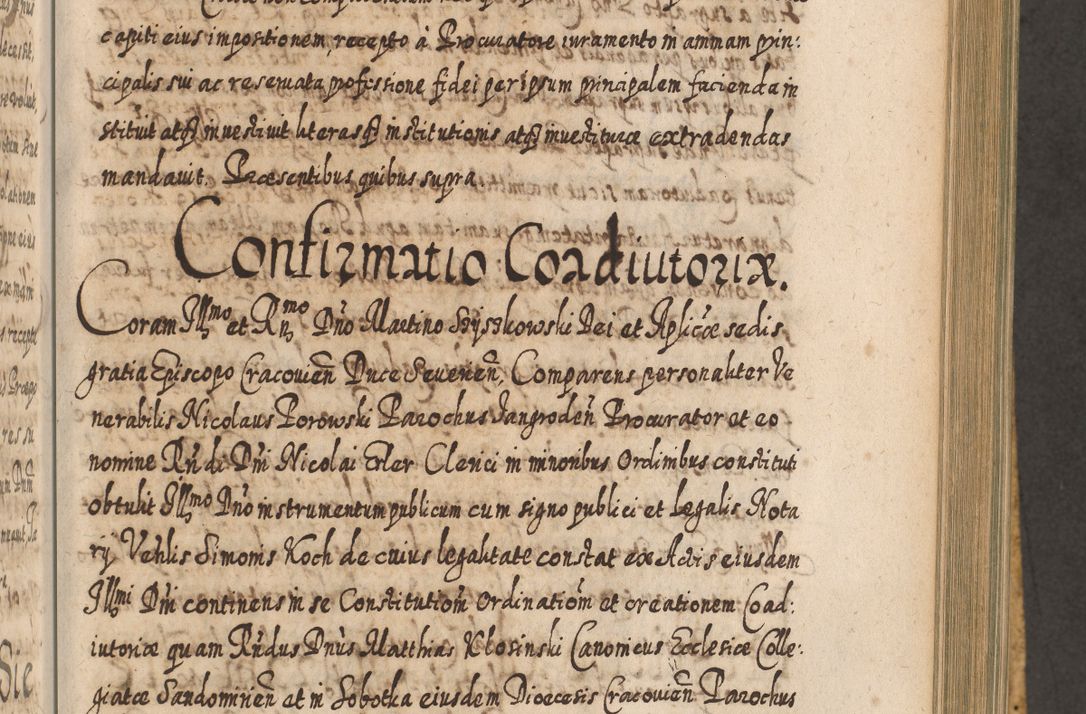 capiti eius impositionem, recepto à Procuratore iuramento in animam prin:
cipalis sui ac reservata professione fidei per ipsum principalem facienda in
stituit atq3 investivit literasq3 institutionis atq3 investiturae extradendas
mandavit. Praesentibus quibus supra.
Confirmatio Coadiutoriae.
Coram Illmo et Rndmo Dno Martino Szyszkowski Dei et Aplicae sedis
gratia Episcopo Cracovien Duce Severien, Comparens personaliter Ve
nerabilis Nicolaus Porowski Parochus Jangroden Procurator et eo
nomine Rndi Dni Nicolai Erler Clerici in minoribus Ordinibus constituti
obtulit Illmo Dno instrumentum publicum cum signo publici et Legalis Nota
rij Vehlis Simonis Koch de cuius legalitate constat ex Actis eiusdem
Illmi Dni continens in se Constitutiom Ordinatiom et creationem Coad:
iutoriae quam Rndus Dnus Matthias Klosinski Canonicus Ecclesiae Colle:
giatae Sandomirien et in Sobotka eiusdem Dioecesis Cracovien Parochus